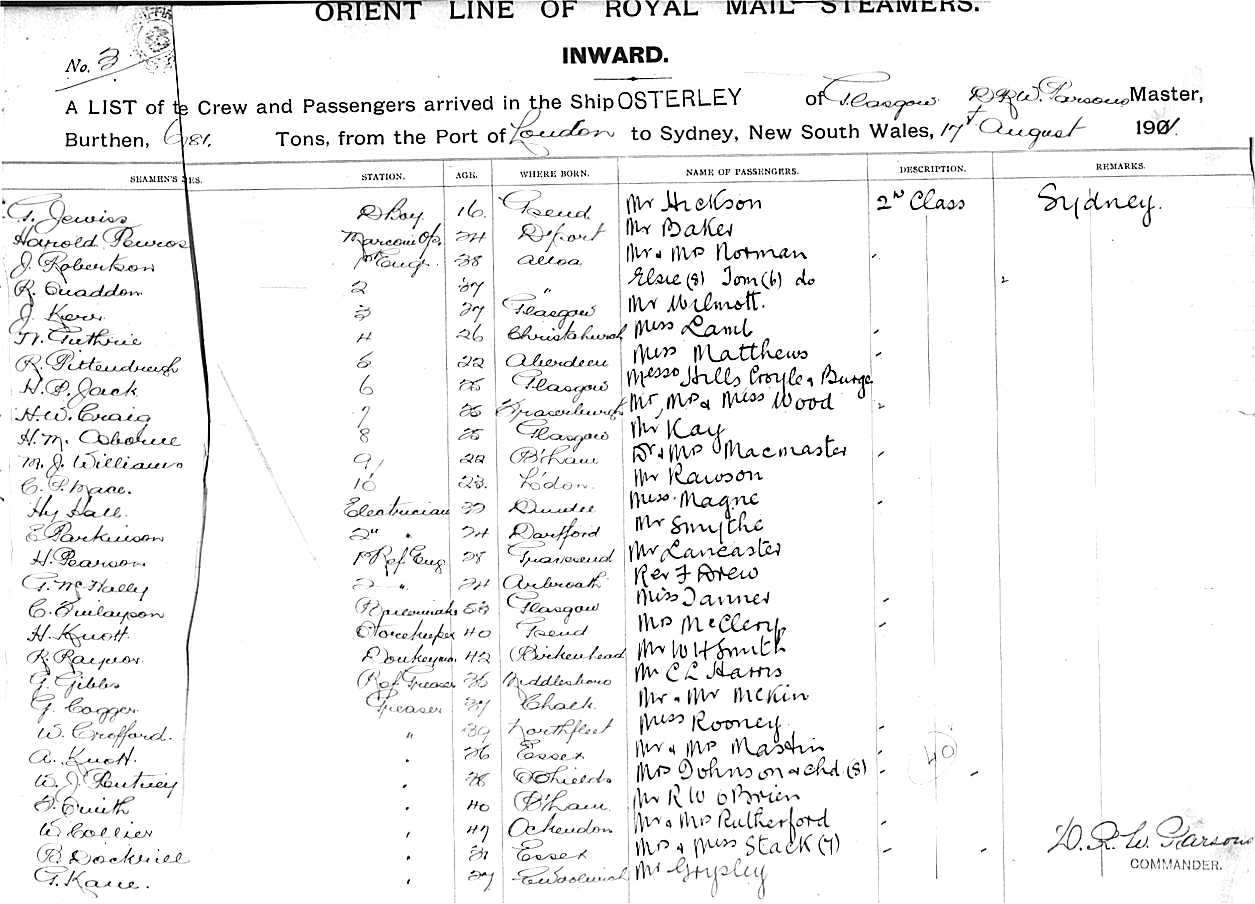 ORIENT LINE OF ROYAL MAIL STEAMERS.
INWARD.
No. 3
A LIST of te Crew and Passengers arrived in the Ship OSTERLEY of Glasgow D R W. Parsons Master,
Burthen, 681. Tons, from the Port of London to Sydney, New South Wales, 17 August 190
SEAMEN'S STATION. AGE. WHERE BORN. NAME OF PASSENGERS. DESCRIPTION. REMARKS.
G. Jewiss D Boy 16. G'send Mr Hickson 2ND Class Sydney.
Harold Marconi Op. 24 D'port Mr Baker
J. Robertson 1st Eng. 38 Alloa Mr & Mrs Norman
R. 2 37 " Elsie (8) Tom (6) do
J. Kerr 3 27 Glasgow Mr Wilmott.
W. Guthrie 4 26 Christchurch Miss Lamb
R. Pittendreigh 5 22 Aberdeen Miss Matthews
H. P. Jack 6 25 Glasgow Messrs Hills Croyle & Burge
H. W. Craig 7 25 Fraserburgh Mr, Mrs & Miss Wood
H. M. Osborne 8 25 Glasgow Mr Kay
M. J. Williams 9 22 B'ham Dr & Mrs Macmaster
C. P. Mace. 10 23 L'don. Mr Rawson
Hy Hall. Electrician 32 Dundee Miss Magne
E Parkinson 2" " 24 Dartford Mr Smythe
H. Pearson 1st Ref Eng 28 Gravesend Mr Lancaster
G. McNally 2 " 24 Arbroath Rev F Drew
C. Finlayson 53 Glasgow Miss Tanner
H. Knott Storekeeper 40 G'send Mrs McClery
R. Raynor Donkeyman 42 Birkenhead Mr W H Smith
G. Gibbs Ref Greaser 36 Middlesboro Mr C L Harris
G. Cogger Greaser 37 Chalk Mr & Mr McKin
W. Crefford. " 39 Northfleet Miss Rooney
A. Knott. " 26 Essex Mr & Mrs Mastin 40
W. J. " 38 S Shields Mrs Johnson & chd (8)
Smith " 40 B'ham Mr R W O'Brien
W Collier " 47 Ockendon Mr & Mrs Rutherford
B. Dockrill " 31 Essex Mrs & Miss Stack (7) D. R. W. Parsons
G. Kane. " 27 E Woolwich Mr Grypley COMMANDER.